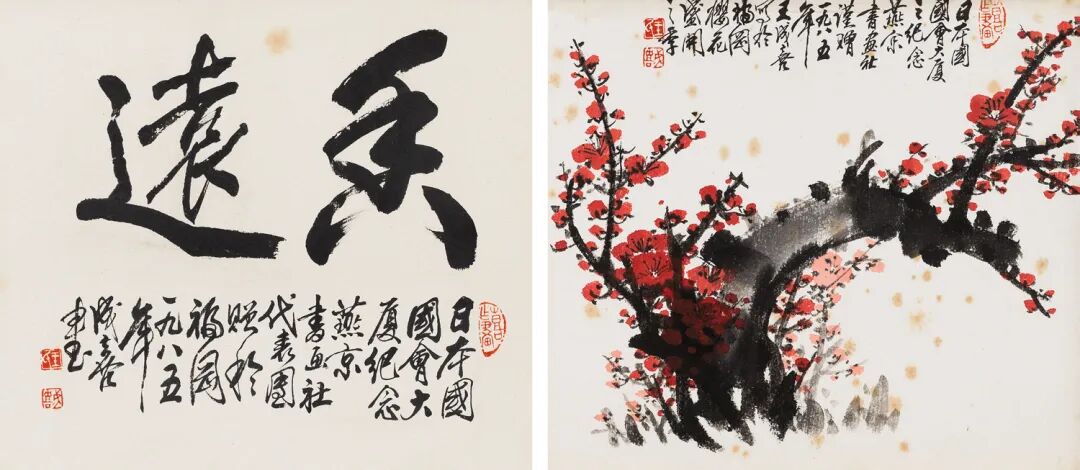 香遠
日本國
國會大
厦紀念
燕京
書画社
代表團
贈於
福岡
一九八五
年
成喜
日本國
國會大厦
之紀念
燕京
書画社
謹贈
一九八五
年
王成喜
寫於
福岡
櫻花
盛開
之季